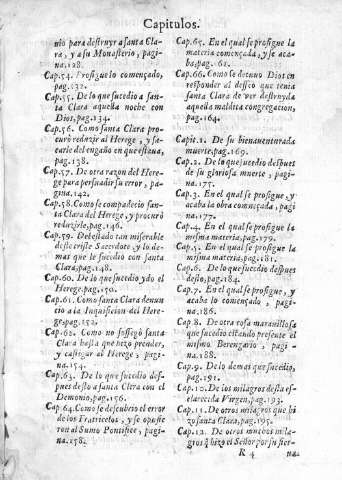 Capitulos.
nio para destruyr a santa Cla-
ra, y a su Monasterio, pagi-
na.128.
Cap.54. Prosigue lo començado,
pag.132.
Cap.55. De lo que sucedio a san-
ta Clara aquella noche con
Dios, pag.134.
Cap.56. Como santa Clara pro-
curò reduzir al Herege, y sa-
carle del engaño en que estaua,
pag.138.
Cap.57. De otra razon del Here-
ge para persuadir su error, pa-
gina.142.
Cap.58. Como se compadecio san-
ta Clara del Herege, y procurò
reduzirle, pag.146.
Cap.59. Del estado tan miserable
deste triste Sacerdote, y lo de-
mas que le sucedio con santa
Clara, pag.148.
Cap.60. De lo que sucedio ydo el
Herege, pag.150.
Cap.61. Como santa Clara denun-
cio a la Inquisicion del Here-
ge, pag.152.
Cap.62. Como no sossegò santa
Clara hasta que hizo prender,
y castigar al Herege, pagi-
na.154.
Cap.63. De lo que sucedio des-
pues desto a santa Clara con el
Demonio, pag.156.
Cap.64. Como se descubrio el error
de los Fratricelos, y se opusie-
ron al Sumo Pontifice, pagi-
na.158.
Cap.65. En el qual se prosigue la
materia començada, y se aca-
ba, pag.162.
Cap.66. Como se detuuo Dios en
responder al desseo que tenia
santa Clara de ver destruyda
aquella maldita congregacion,
pag.164.
Capit.1. De su bienauenturada
muerte, pag.169.
Cap.2. De lo que sucedio despues
de su gloriosa muerte, pagi-
na.175.
Cap.3. En el qual se prosigue, y
acaba la obra començada, pagi
na.177.
Cap.4. En el qual se prosigue la
misma materia, pag.179.
Cap.5. En el qual se prosigue la
misma materia, pag.181.
Cap.6. De lo que sucedio despues
desto, pag.184.
Cap.7. En el qual se prosigue, y
acaba lo començado, pagi-
na.186.
Cap.8. De otra cosa marauillosa
que sucedio estando presente el
mismo Berengario, pagi-
na.188.
Cap.9. De lo demas que sucedio,
pag.191.
Cap.10. De los milagros desta es-
clarecida Virgen, pag.193.
Cap.11. De otros milagros que hi
zo santa Clara, pag.195.
Cap.12. De otros muchos mila-
gros q̃ hizo el Señor por su sier-
R 4 na.